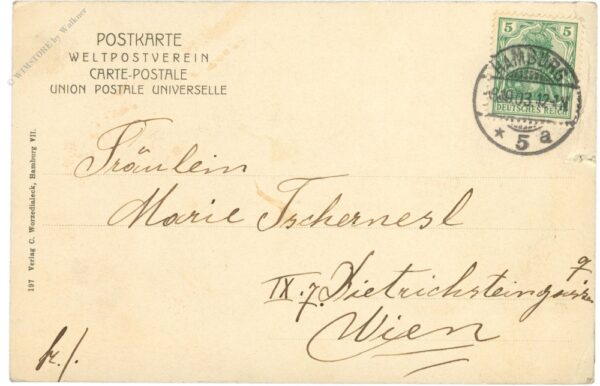 © WIMSTORE by Walkner
POSTKARTE
WELTPOSTVEREIN
CARTE-POSTALE
UNION POSTALE UNIVERSELLE
5 5
DEUTSCHES REICH
HAMBURG
03.12-1N
* 5 a
Fräulein
Marie Tschernesl
IX. 7. Dietrichsteingasse
9
Wien
fr./.
197 Verlag C. Worzedialeck, Hamburg VII.